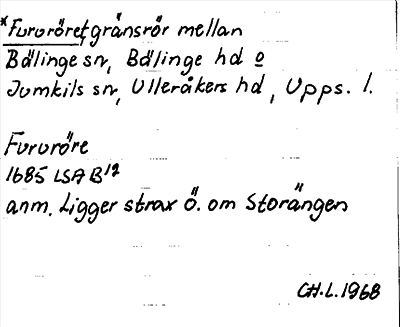 *Fururöret, gränsrör mellan
Bälinge sn, Bälinge hd o
Jumkils sn, Ulleråkers hd, Upps. l.
Fururöre
1685 LSA B 12
anm. Ligger strax Ö. om Storängen
CH.L. 1968